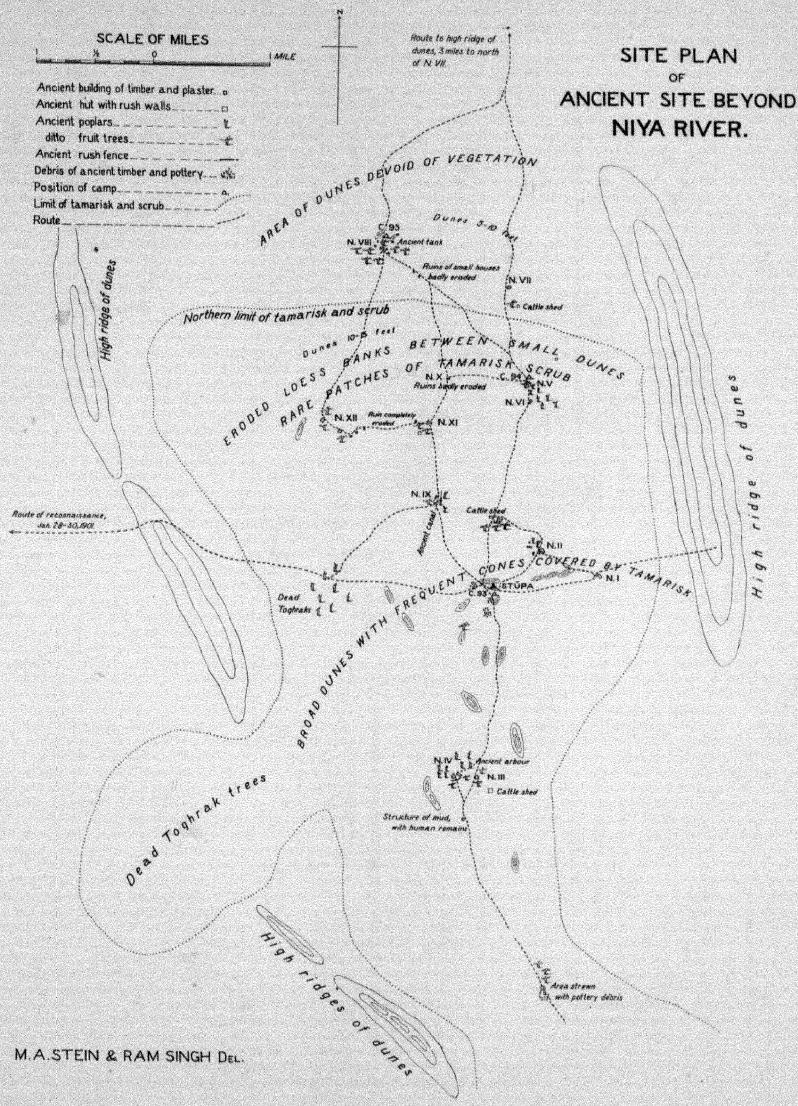 SCALE OF MILES
1 ½ 0 1 MILE
Ancient building of timber and plaster
Ancient hut with rush walls
Ancient poplars
ditto fruit trees
Ancient rush fence
Debris of ancient timber and pottery
Position of camp
Limit of tamarisk and scrub
Route
N
Route to high ridge of
dunes, 3 miles to north
of N. VII.
SITE PLAN
OF
ANCIENT SITE BEYOND
NIYA RIVER.
AREA OF DUNES DEVOID OF VEGETATION
High ridge of dunes
C. 95
N. VIII
Ancient tank
Dunes 5-10 feet
Ruins of small houses
badly eroded
N. VII
Cattle shed
Northern limit of tamarisk and scrub
Dunes 10-15 feet
ERODED LOESS BANKS BETWEEN SMALL DUNES
RARE PATCHES OF TAMARISK SCRUB
N. X
Ruins badly eroded
C. 94
N. V
N. VI
N. XII
Ruin completely
eroded
N. XI
High ridge of dunes
N. IX
Ancient canal
Cattle shed
Route of reconnaissance,
Jan. 28-30, 1901.
N. II
N. I
C. 93
STŪPA
Dead
Toghraks
BROAD DUNES WITH FREQUENT CONES COVERED BY TAMARISK
N. IV
Ancient arbour
N. III
Cattle shed
Structure of mud,
with human remains
Dead Toghrak trees
High ridges of dunes
Area strewn
with pottery débris
M.A. STEIN & RAM SINGH DEL.